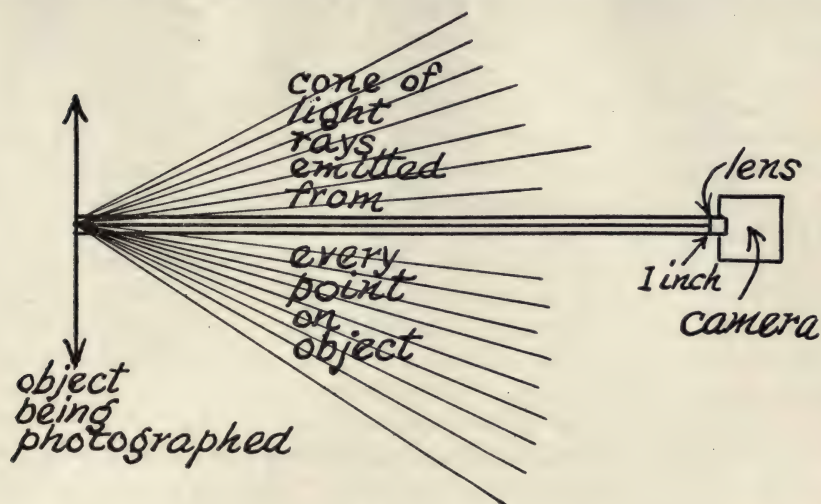 cone of
light
rays
emitted
from
every
point
on
object
lens
1 inch
camera
object
being
photographed